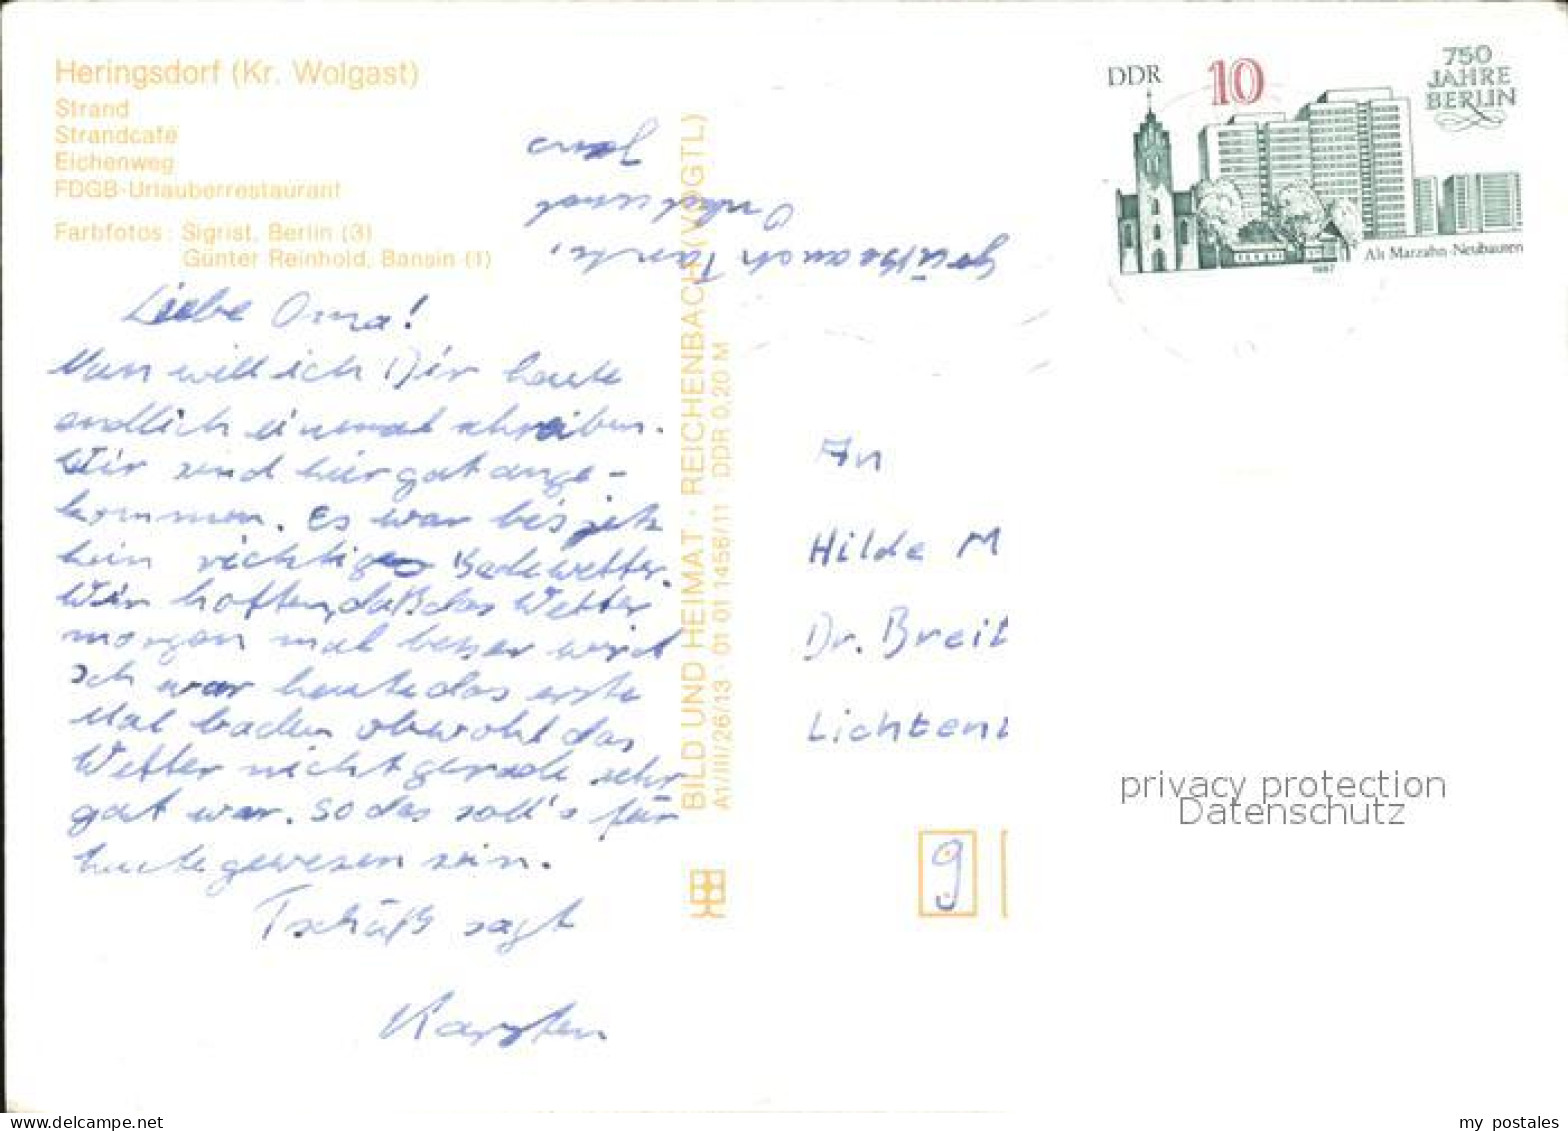 Heringsdorf (Kr. Wolgast)
Strand
Strandcafé
Eichenweg
FDGB-Urlauberrestaurant
Farbfotos: Sigrist, Berlin (3)
Günter Reinhold, Bansin (1)
Liebe Oma!
Nun will ich Dir heute
endlich einmal schreiben.
Wir sind hier gut ange-
kommen. Es war bis jetz
kein richtiges Badewetter.
Wir hoffen, daß das Wetter
morgen mal besser wird
Ich war heute das erste
Mal baden obwohl das
Wetter nicht gerade sehr
gut war. So das soll's für
heute gewesen sein.
Tschüß sagt
Karsten
Grüße auch Tante,
Onkel und
Jens
BILD UND HEIMAT · REICHENBACH (VOGTL)
A1/III/26/13 · 01 01 1456/11 · DDR 0,20 M
DDR
10
750
JAHRE
BERLIN
Alt Marzahn-Neubauten
1987
An
Hilde M
Dr. Breit
Lichten
9
privacy protection
Datenschutz
my postales